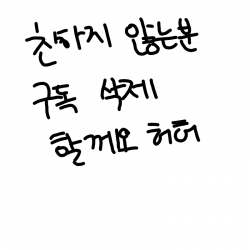 친하지 않는분
구독 삭제
할께요 허허